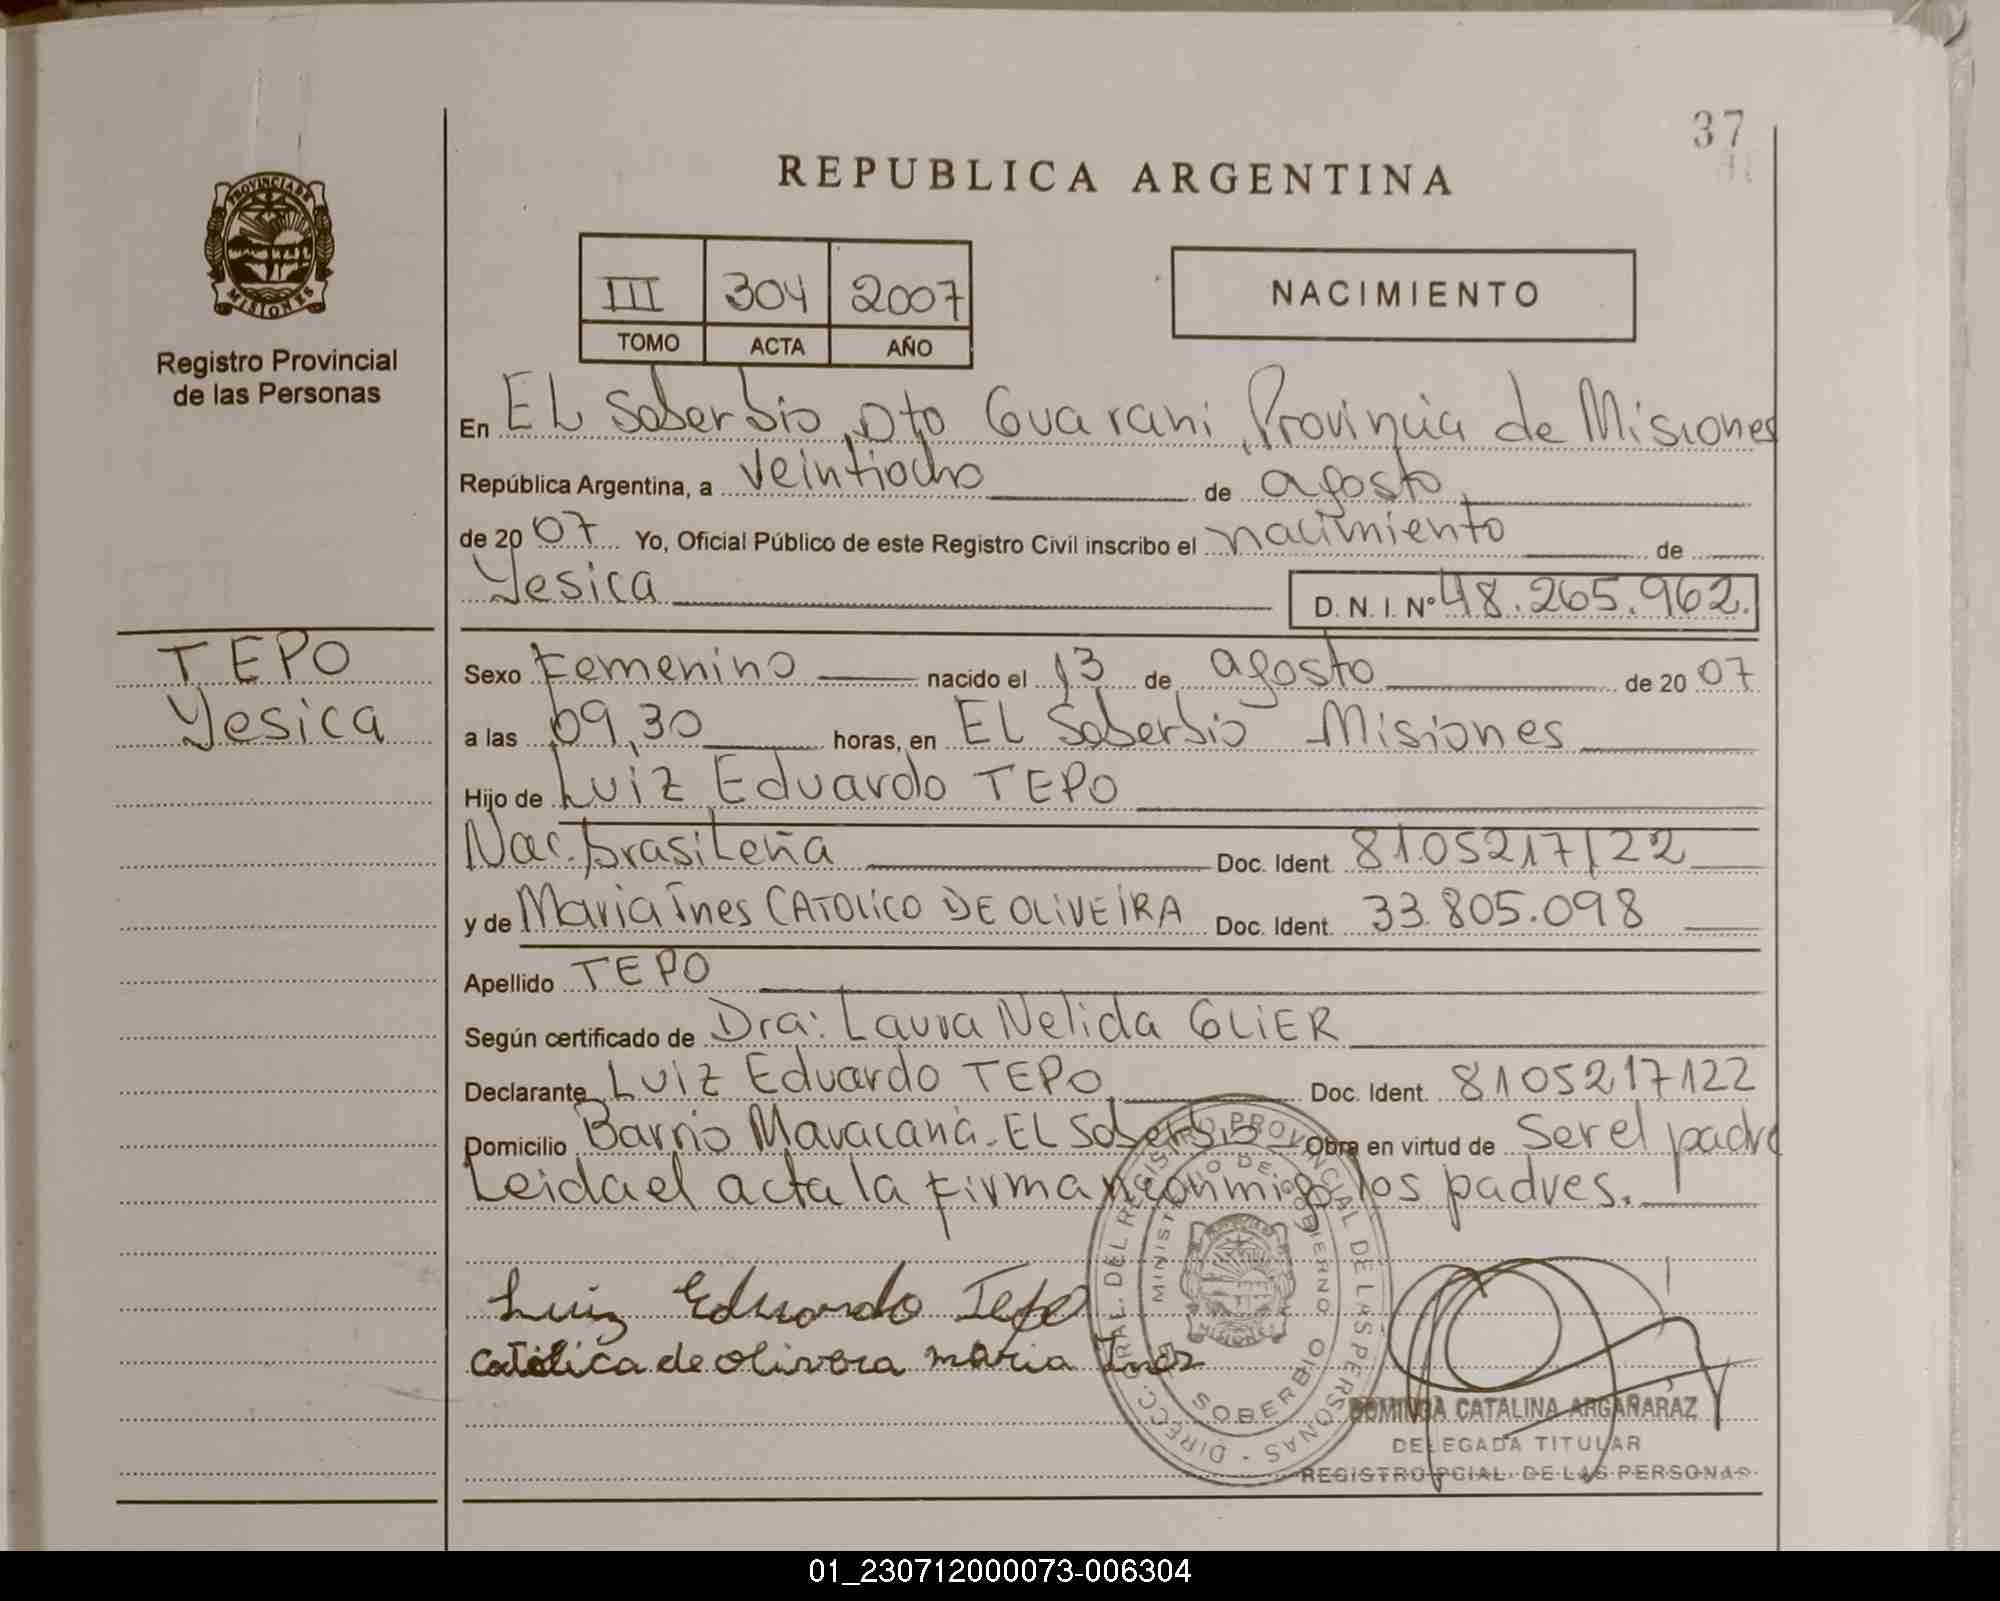 37
REPUBLICA ARGENTINA
PROVINCIA DE
MISIONES
Registro Provincial
de las Personas
III 304 2007
TOMO ACTA AÑO
NACIMIENTO
En EL Soberbio, Dto Guarani, Provincia de Misiones
República Argentina, a veintiocho de agosto
de 2007 Yo, Oficial Público de este Registro Civil inscribo el nacimiento de
Yesica D. N. I. Nº 48.265.962.
TEPO
Yesica
Sexo Femenino nacido el 13 de agosto de 2007
a las 09,30 horas, en EL Soberbio Misiones
Hijo de Luiz Eduardo TEPO
Nac. brasileña Doc. Ident. 8105217122
y de Maria Ines CATOLICO DE OLIVEIRA Doc. Ident. 33.805.098
Apellido TEPO
Según certificado de Dra: Laura Nelida GLIER
Declarante Luiz Eduardo TEPO Doc. Ident. 8105217122
Domicilio Barrio Maracaná - EL Soberbio Obra en virtud de Ser el padre
Leida el acta la firman conmigo los padres.
Luiz Eduardo Tepo
Católica de olivera maria Ines
DIRECC. GRAL. DEL REGISTRO PROVINCIAL DE LAS PERSONAS
MINISTERIO DE GOBIERNO
SOBERBIO
MISIONES
DOMINGA CATALINA ARGAÑARAZ
DELEGADA TITULAR
REGISTRO PCIAL. DE LAS PERSONAS
01_230712000073-006304